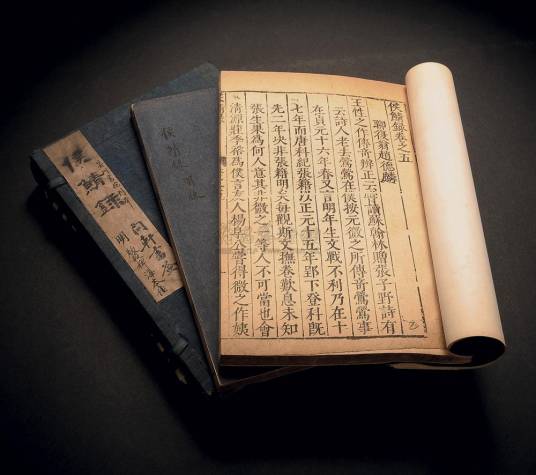 侯鯖錄卷之五
聊復翁趙德麟
王性之作傳奇辨正云嘗讀蘇翰林贈張子野詩有
云詩人老去鶯鶯在僕按元微之所傳奇鶯鶯事
在貞元十六年春又言明年生文戰不利乃在十
七年而唐科紀張籍以正元十五年郢下登科既
先二年決非張籍明矣每觀斯文撫卷歎息未知
張生果爲何人意其非微之一等人不可當也會
清源莊季裕爲僕言友人楊阜公嘗得微之作姨
侯鯖錄
侯鯖錄
明